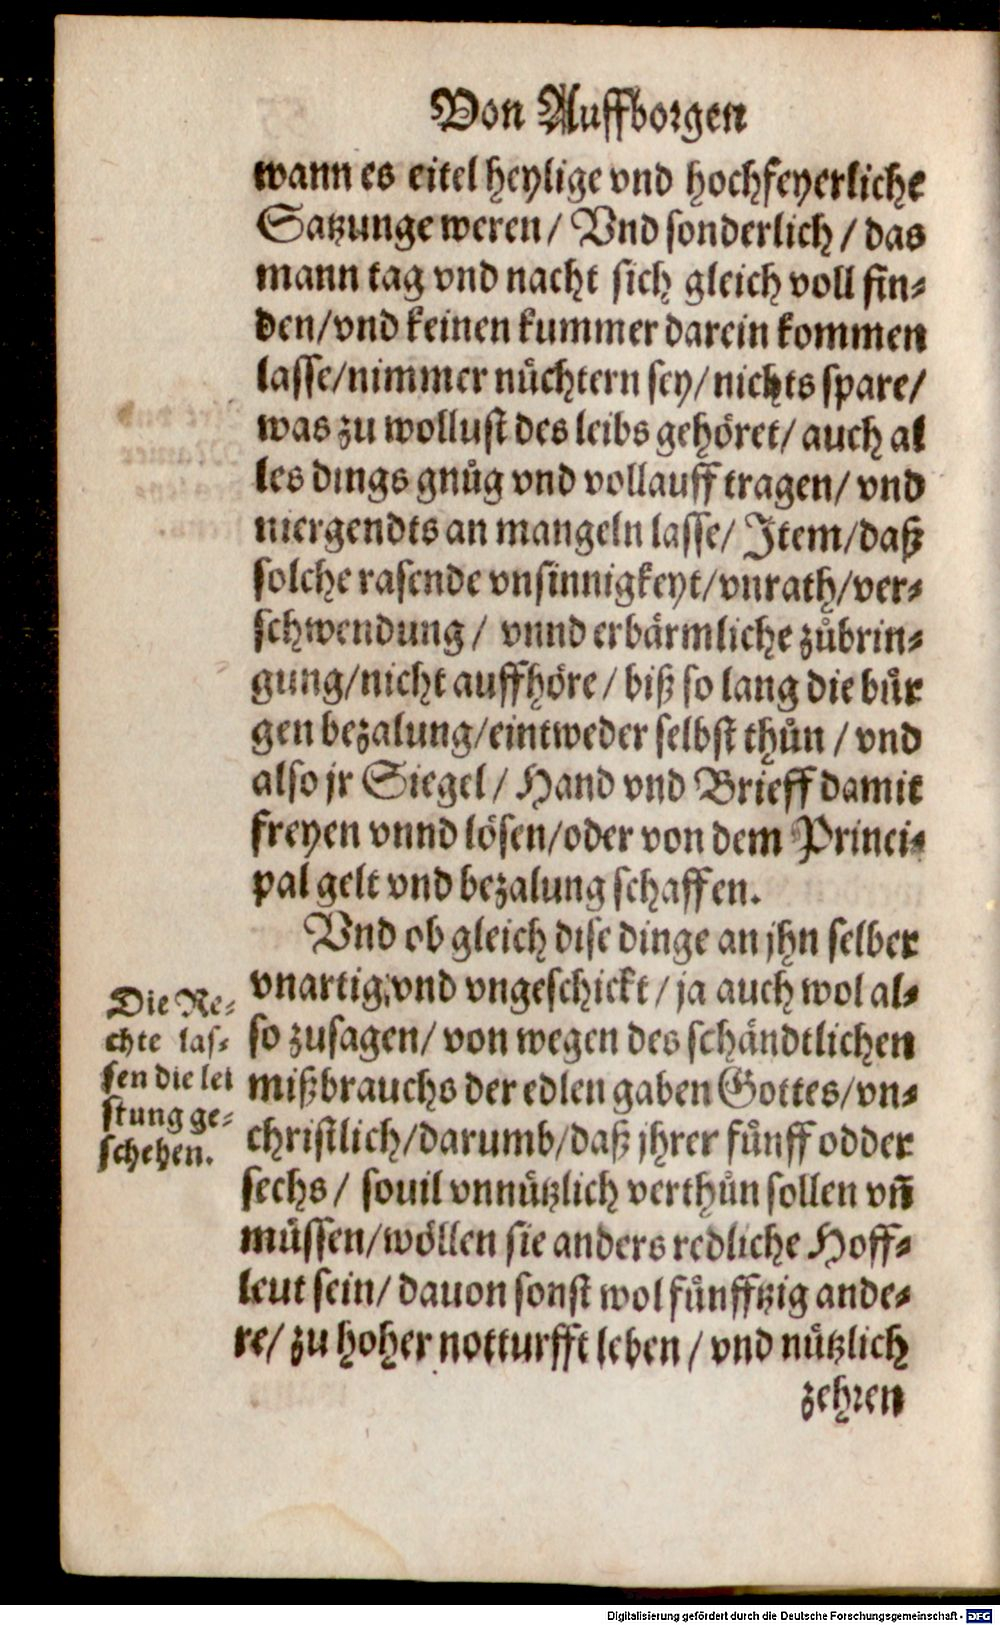 Von Auffborgen
wann es eitel heylige vnd hochfeyerliche
Satzunge weren/ Vnd sonderlich/ das
mann tag vnd nacht sich gleich voll fin-
den/vnd keinen kummer darein kommen
lasse/nimmer nüchtern sey/nichts spare/
was zu wollust des leibs gehöret/ auch al
les dings gnůg vnd vollauff tragen/ vnd
niergendts an mangeln lasse/ Item/daß
solche rasende vnsinnigkeyt/vnrath/ver-
schwendung/ vnnd erbärmliche zůbrin-
gung/nicht auffhöre/ biß so lang die bür
gen bezalung/eintweder selbst thůn/ vnd
also jr Siegel/ Hand vnd Brieff damit
freyen vnnd lösen/oder von dem Princi-
pal gelt vnd bezalung schaffen.
Vnd ob gleich dise dinge an jhn selber
vnartig, vnd vngeschickt/ ja auch wol al-
so zusagen/ von wegen des schändtlichen
mißbrauchs der edlen gaben Gottes/vn-
christlich/darumb/daß jhrer fünff odder
sechs/ souil vnnützlich verthůn sollen vñ
müssen/wöllen sie anders redliche Hoff-
leut sein/ dauon sonst wol fünfftzig ande-
re/ zu hoher notturfft leben/ vnd nützlich
zehren
Die Re-
chte las-
sen die lei
stung ge-
schehen.
Digitalisierung gefördert durch die Deutsche Forschungsgemeinschaft - DFG